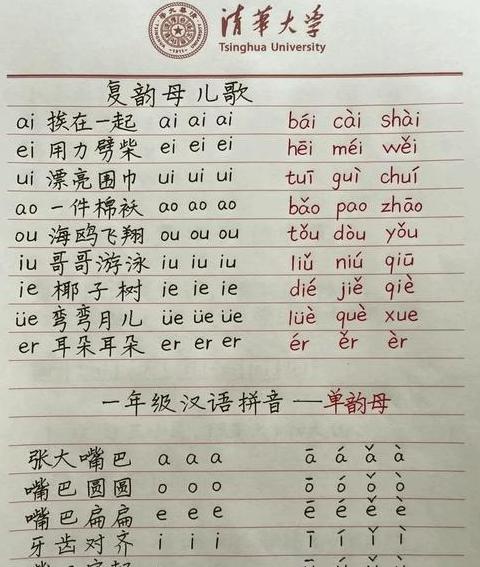 清华大学
Tsinghua University
复韵母儿歌
ai 挨在一起 ai ai ai bái cài shài
ei 用力劈柴 ei ei ei hēi méi wěi
ui 漂亮围巾 ui ui ui tuī guì chuí
ao 一件棉袄 ao ao ao bǎo pao zhāo
ou 海鸥飞翔 ou ou ou tǒu dòu yǒu
iu 哥哥游泳 iu iu iu liǔ niú qiū
ie 椰子树 ie ie ie dié jiě qiè
üe 弯弯月儿 üe üe üe lüè què xue
er 耳朵耳朵 er er er ér ěr èr
一年级汉语拼音——单韵母
张大嘴巴 a a a ā á ǎ à
嘴巴圆圆 o o o ō ó ǒ ò
嘴巴扁扁 e e e ē é ě è
牙齿对齐 i i i ī í ǐ ì